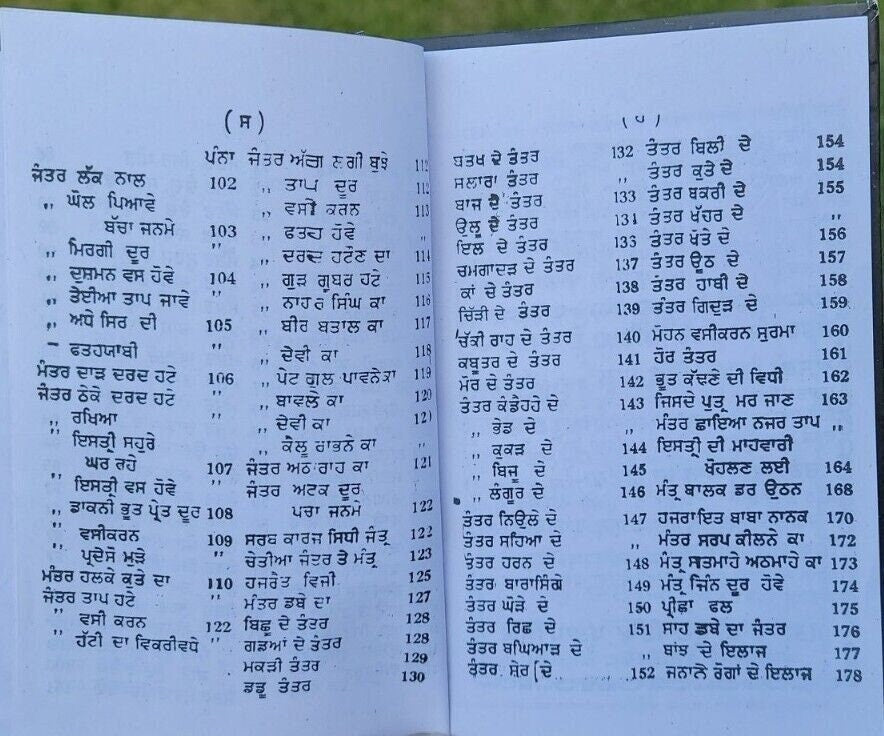 ( ਸ )
ਪੰਨਾ
ਜੰਤਰ ਲੱਕ ਨਾਲ 102
,, ਘੋਲ ਪਿਆਵੇ
ਬੱਚਾ ਜਨਮੇ 103
,, ਮਿਰਗੀ ਦੂਰ "
,, ਦੁਸ਼ਮਨ ਵਸ ਹੋਵੇ 104
,, ਤੇਈਆ ਤਾਪ ਜਾਵੇ "
,, ਅਧੇ ਸਿਰ ਦੀ 105
– ਫਤਹਯਾਬੀ "
ਮੰਤਰ ਦਾੜ ਦਰਦ ਹਟੇ 106
ਜੰਤਰ ਠੇਕੇ ਦਰਦ ਹਟੇ
,, ਰਖਿਆ
" ਇਸਤ੍ਰੀ ਸਹੁਰੇ
ਘਰ ਰਹੇ 107
,, ਇਸਤ੍ਰੀ ਵਸ ਹੋਵੇ "
,, ਡਾਕਨੀ ਭੂਤ ਪ੍ਰੇਤ ਦੂਰ 108
,, ਵਸੀਕਰਨ 109
,, ਪ੍ਰਦੇਸੋ ਮੁੜੇ "
ਮੰਤਰ ਹਲਕੇ ਕੁਤੇ ਦਾ 110
ਜੰਤਰ ਤਾਪ ਹਟੇ "
" ਵਸੀ ਕਰਨ 122
" ਹੱਟੀ ਦਾ ਵਿਕਰੀਵਧੇ "
ਜੰਤਰ ਅੱਗ ਲਗੀ ਬੁਝੇ 112
,, ਤਾਪ ਦੂਰ 112
,, ਵਸੀ ਕਰਨ 113
,, ਫਤਹ ਹੋਵੇ ,,
,, ਦਰਦ ਹਟੌਣ ਦਾ 114
,, ਗੁੜ ਗੂਬਰ ਹਟੇ 115
,, ਨਾਹਰ ਸਿੰਘ ਕਾ 116
,, ਬੀਰ ਬਤਾਲ ਕਾ 117
,, ਦੇਵੀ ਕਾ 118
,, ਪੇਟ ਗੁਲ ਪਾਵਨੇਕਾ 119
,, ਬਾਵਲੇ ਕਾ 120
,, ਦੇਵੀ ਕਾ 120
,, ਕੈਲੂ ਰਾਭਨੇ ਕਾ ,,
ਜੰਤਰ ਅਠ ਰਾਹ ਕਾ 121
ਜੰਤਰ ਅਟਕ ਦੂਰ
ਪਚਾ ਜਨਮੇ 122
ਸਰਬ ਕਾਰਜ ਸਿਧੀ ਜੰਤ੍ਰ 122
ਚੇਤੀਆ ਜੰਤਰ ਤੇ ਮੰਤ੍ਰ 123
ਹਜਰੇਤ ਵਿਜੀ 125
ਮੰਤਰ ਡਬੇ ਦਾ 127
ਬਿਛੂ ਦੇ ਤੰਤਰ 128
ਗਡਆਂ ਦੇ ਤੰਤਰ 128
ਮਕੜੀ ਤੰਤਰ 129
ਡਡੂ ਤੰਤਰ 130
ਬਤਖ ਦੇ ਤੰਤਰ 132
ਸਲਾਰਾ ਤੰਤਰ ,,
ਬਾਜ ਦੇ ਤੰਤਰ 133
ਉਲੂ ਦੇ ਤੰਤਰ 131
ਇਲ ਦੇ ਤੰਤਰ 133
ਚਮਗਾਦੜ ਦੇ ਤੰਤਰ 137
ਕਾਂ ਦੇ ਤੰਤਰ 138
ਚਿੱਤੀ ਦੇ ਤੰਤਰ 139
ਚੱਕੀ ਰਾਹ ਦੇ ਤੰਤਰ 140
ਕਬੂਤਰ ਦੇ ਤੰਤਰ 141
ਮੋਰ ਦੇ ਤੰਤਰ 142
ਤੰਤਰ ਕੰਡੈਹਹੇ ਦੇ 143
,, ਭੇਡ ਦੇ ,,
,, ਕੁਕੜ ਦੇ 144
,, ਬਿਜੂ ਦੇ 145
,, ਲੰਗੂਰ ਦੇ 146
ਤੰਤਰ ਨਿਉਲੇ ਦੇ 147
ਤੰਤਰ ਸਹਿਆ ਦੇ ,,
ਤੰਤਰ ਹਰਨ ਦੇ 148
ਤੰਤਰ ਬਾਰਾਸਿੰਗੇ 149
ਤੰਤਰ ਘੋੜੇ ਦੇ 150
ਤੰਤਰ ਰਿਛ ਦੇ 151
ਤੰਤਰ ਬਘਿਆੜ ਦੇ ,,
ਤੰਤਰ ਸ਼ੇਰ ਦੇ 152
ਤੰਤਰ ਬਿਲੀ ਦੇ 154
ਤੰਤਰ ਕੁਤੇ ਦੇ 154
ਤੰਤਰ ਬਕਰੀ ਦੇ 155
ਤੰਤਰ ਖੱਚਰ ਦੇ ,,
ਤੰਤਰ ਖੋਤੇ ਦੇ 156
ਤੰਤਰ ਊਠ ਦੇ 157
ਤੰਤਰ ਹਾਬੀ ਦੇ 158
ਤੰਤਰ ਗਿਦੜ ਦੇ 159
ਮੋਹਨ ਵਸੀਕਰਨ ਸੁਰਮਾ 160
ਹੋਰ ਤੰਤਰ 161
ਭੂਤ ਕੱਢਣੇ ਦੀ ਵਿਧੀ 162
ਜਿਸਦੇ ਪੁਤ੍ਰ ਮਰ ਜਾਣ 163
ਮੰਤਰ ਛਾਇਆ ਨਜਰ ਤਾਪ ,,
ਇਸਤ੍ਰੀ ਦੀ ਮਾਹਵਾਰੀ
ਖੋਹਲਣ ਲਈ 164
ਮੰਤ੍ਰ ਬਾਲਕ ਡਰ ਉਠਨ 168
ਹਜਰਾਇਤ ਬਾਬਾ ਨਾਨਕ 170
ਮੰਤਰ ਸਰਪ ਕੀਲਨੇ ਕਾ 172
ਮੰਤ੍ਰ ਸਾਤਮਾਹੇ ਅਠਮਾਹੇ ਕਾ 173
ਮੰਤ੍ਰ ਜਿੰਨ ਦੂਰ ਹੋਵੇ 174
ਪ੍ਰੀਛਾ ਫਲ 175
ਸਾਹ ਡਬੇ ਦਾ ਜੰਤਰ 176
ਬਾਂਝ ਦੇ ਇਲਾਜ 177
ਜਨਾਨੇ ਰੋਗਾਂ ਦੇ ਇਲਾਜ 178